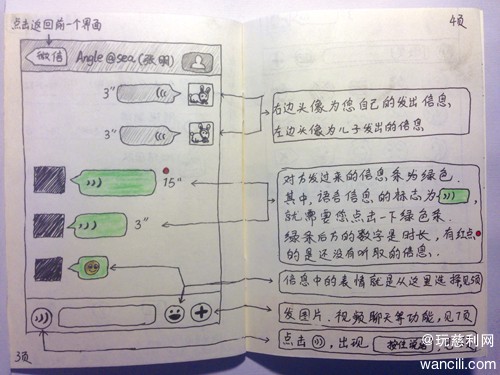 点击返回前一个界面
微信
Angle@sea(张明)
3"
3"
15"
3"
3页
4页
右边头像为您自己的发出信息、
左边头像为儿子发出的信息
对方发过来的信息条为绿色.
其中,语音信息的标志为
就需要您点击一下绿色条.
绿条后方的数字是时长,有红点
的是还没有听取的信息.
信息中的表情就是从这里选择见5页
发图片、视频聊天等功能,见7页
点击 ,出现 按住说话
@玩慈利网
wancili.com